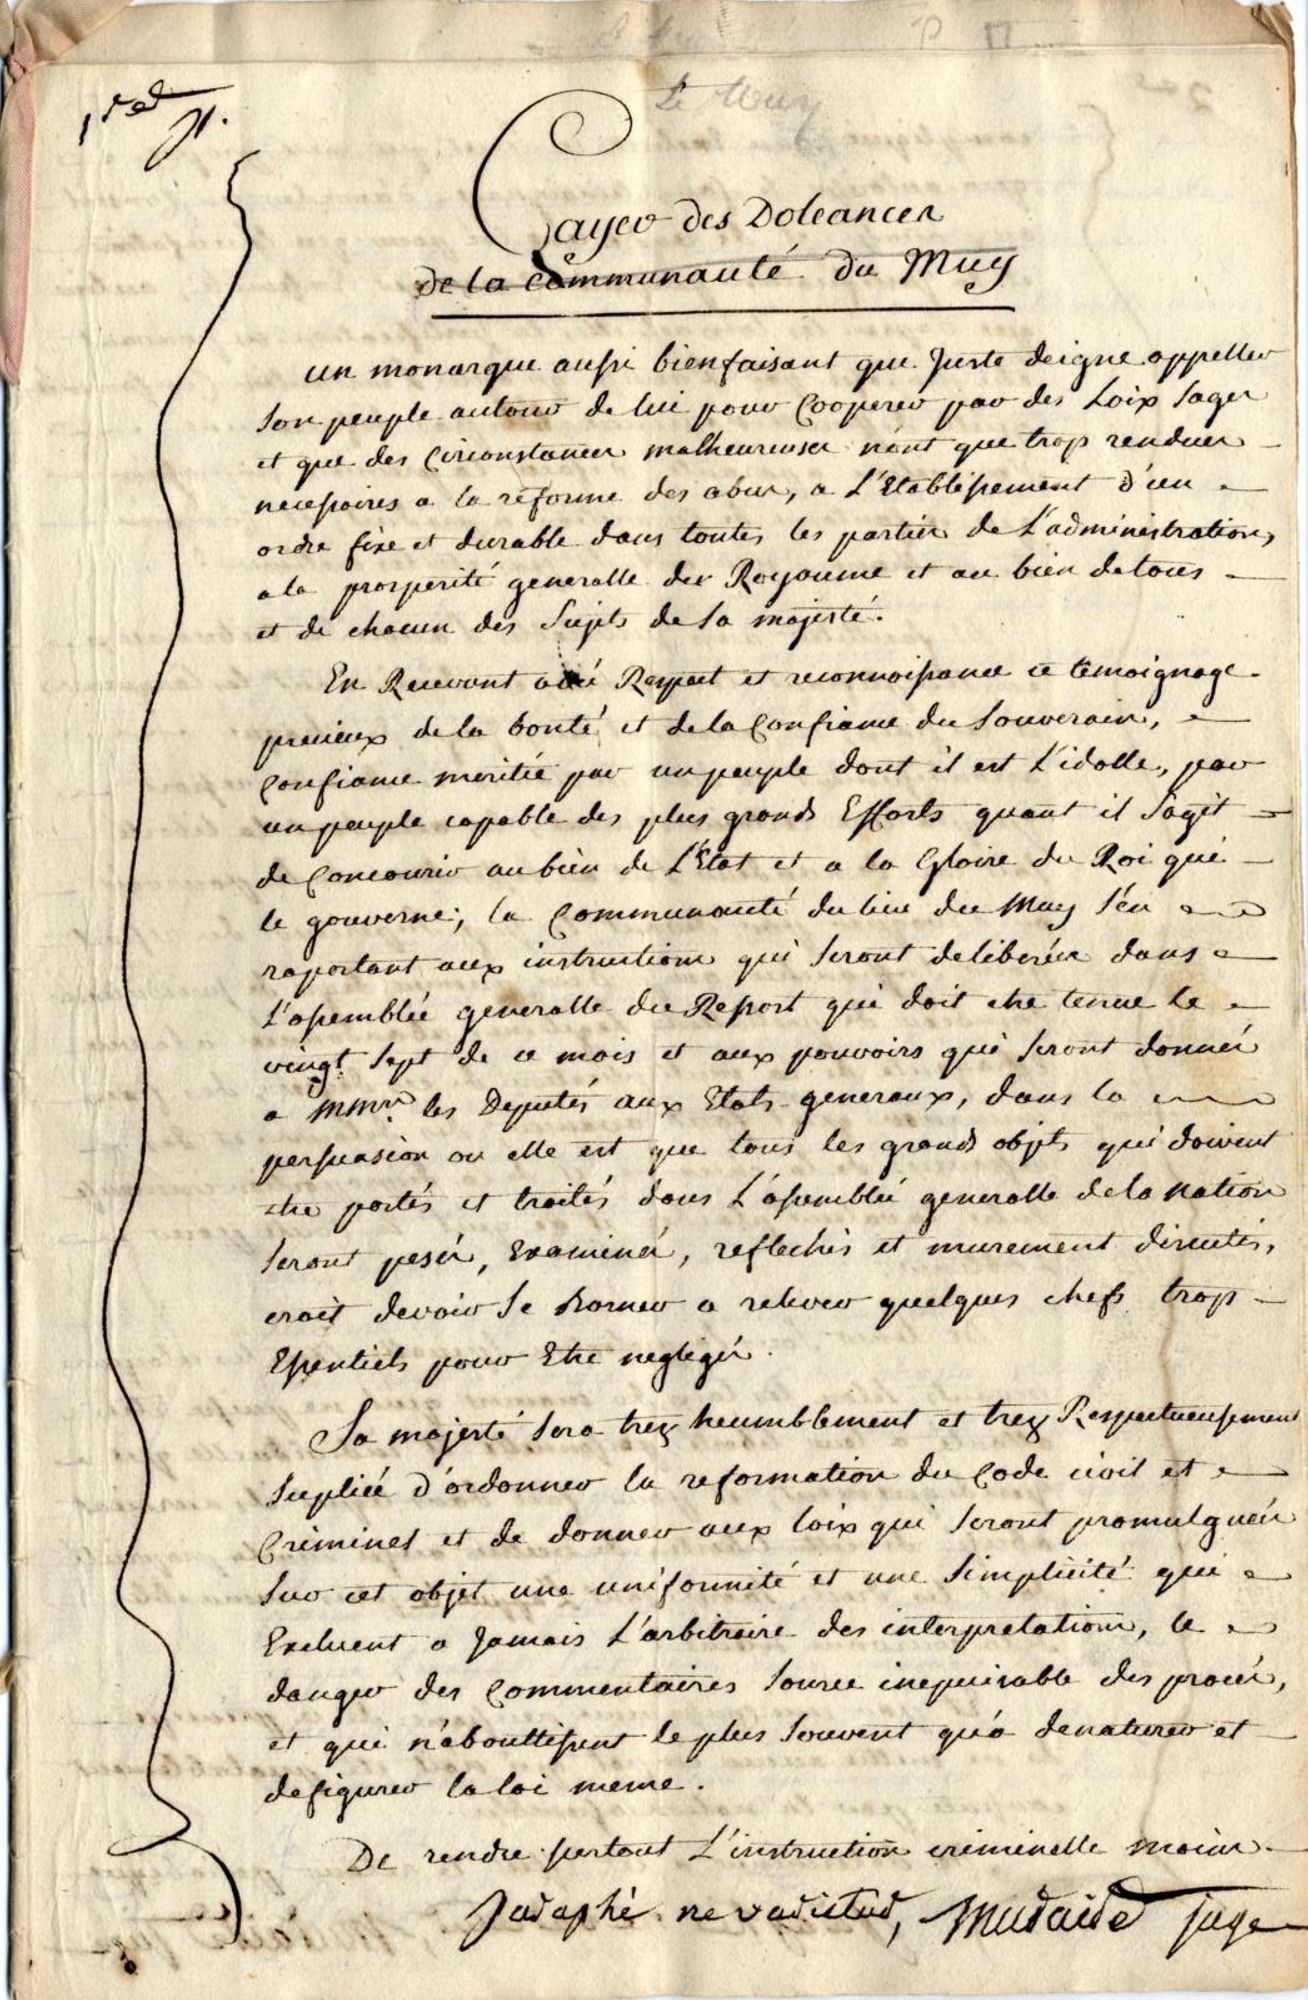 Le Muy
Cayer des Doleances
de la Communauté du Muy
un monarque aussi bienfaisant que Juste deigne appeller
son peuple autour de lui pour Cooperer par des Loix sages
et que des Circonstances malheureuses n'ont que trop rendues
necessaires a la réforme des abus, a L'Etablissement d'un
ordre fixe et durable dans toutes les parties de L'administration,
a la prosperité generalle du Royaume et au bien de tous
et de chacun des Sujets de sa majesté.
En Recevant avec Respect et reconnoissance ce témoignage
precieux de la bonté et de la Confiance du Souverain,
Confiance meritée par un peuple dont il est L'idolle, par
un peuple capable des plus grands Efforts quant il s'agit
de Concourir au bien de L'Etat et a la Gloire du Roi qui
le gouverne; la Communauté du lieu du Muy s'en
raportant aux instructions qui seront deliberées dans
L'assemblée generalle du Ressort qui doit etre tenue le
vingt sept de ce mois et aux pouvoirs qui seront donnés
a MMrs les Deputés aux Etats generaux, dans la
persuasion ou elle est que tous les grands objets qui doivent
etre portés et traités dans L'assemblée generalle de la Nation
seront pesés, Examinés, reflechis et murement discutés,
croit devoir se Borner a relever quelques chefs trop
Essentiels pour Etre negligés.
Sa majesté sera trez heumblement et trez Respectueusement
supliée d'ordonner la reformation du Code civil et
Criminel et de donner aux loix qui seront promulguées
sur cet objet une uniformité et une simplicité qui
Excluent a Jamais L'arbitraire des interpretations, le
danger des Commentaires source inepuisable des procés,
et qui n'abouttissent le plus souvent qu'a denaturer et
defigurer la loi meme.
De rendre partout L'instruction criminelle moins
ne varietur, juge